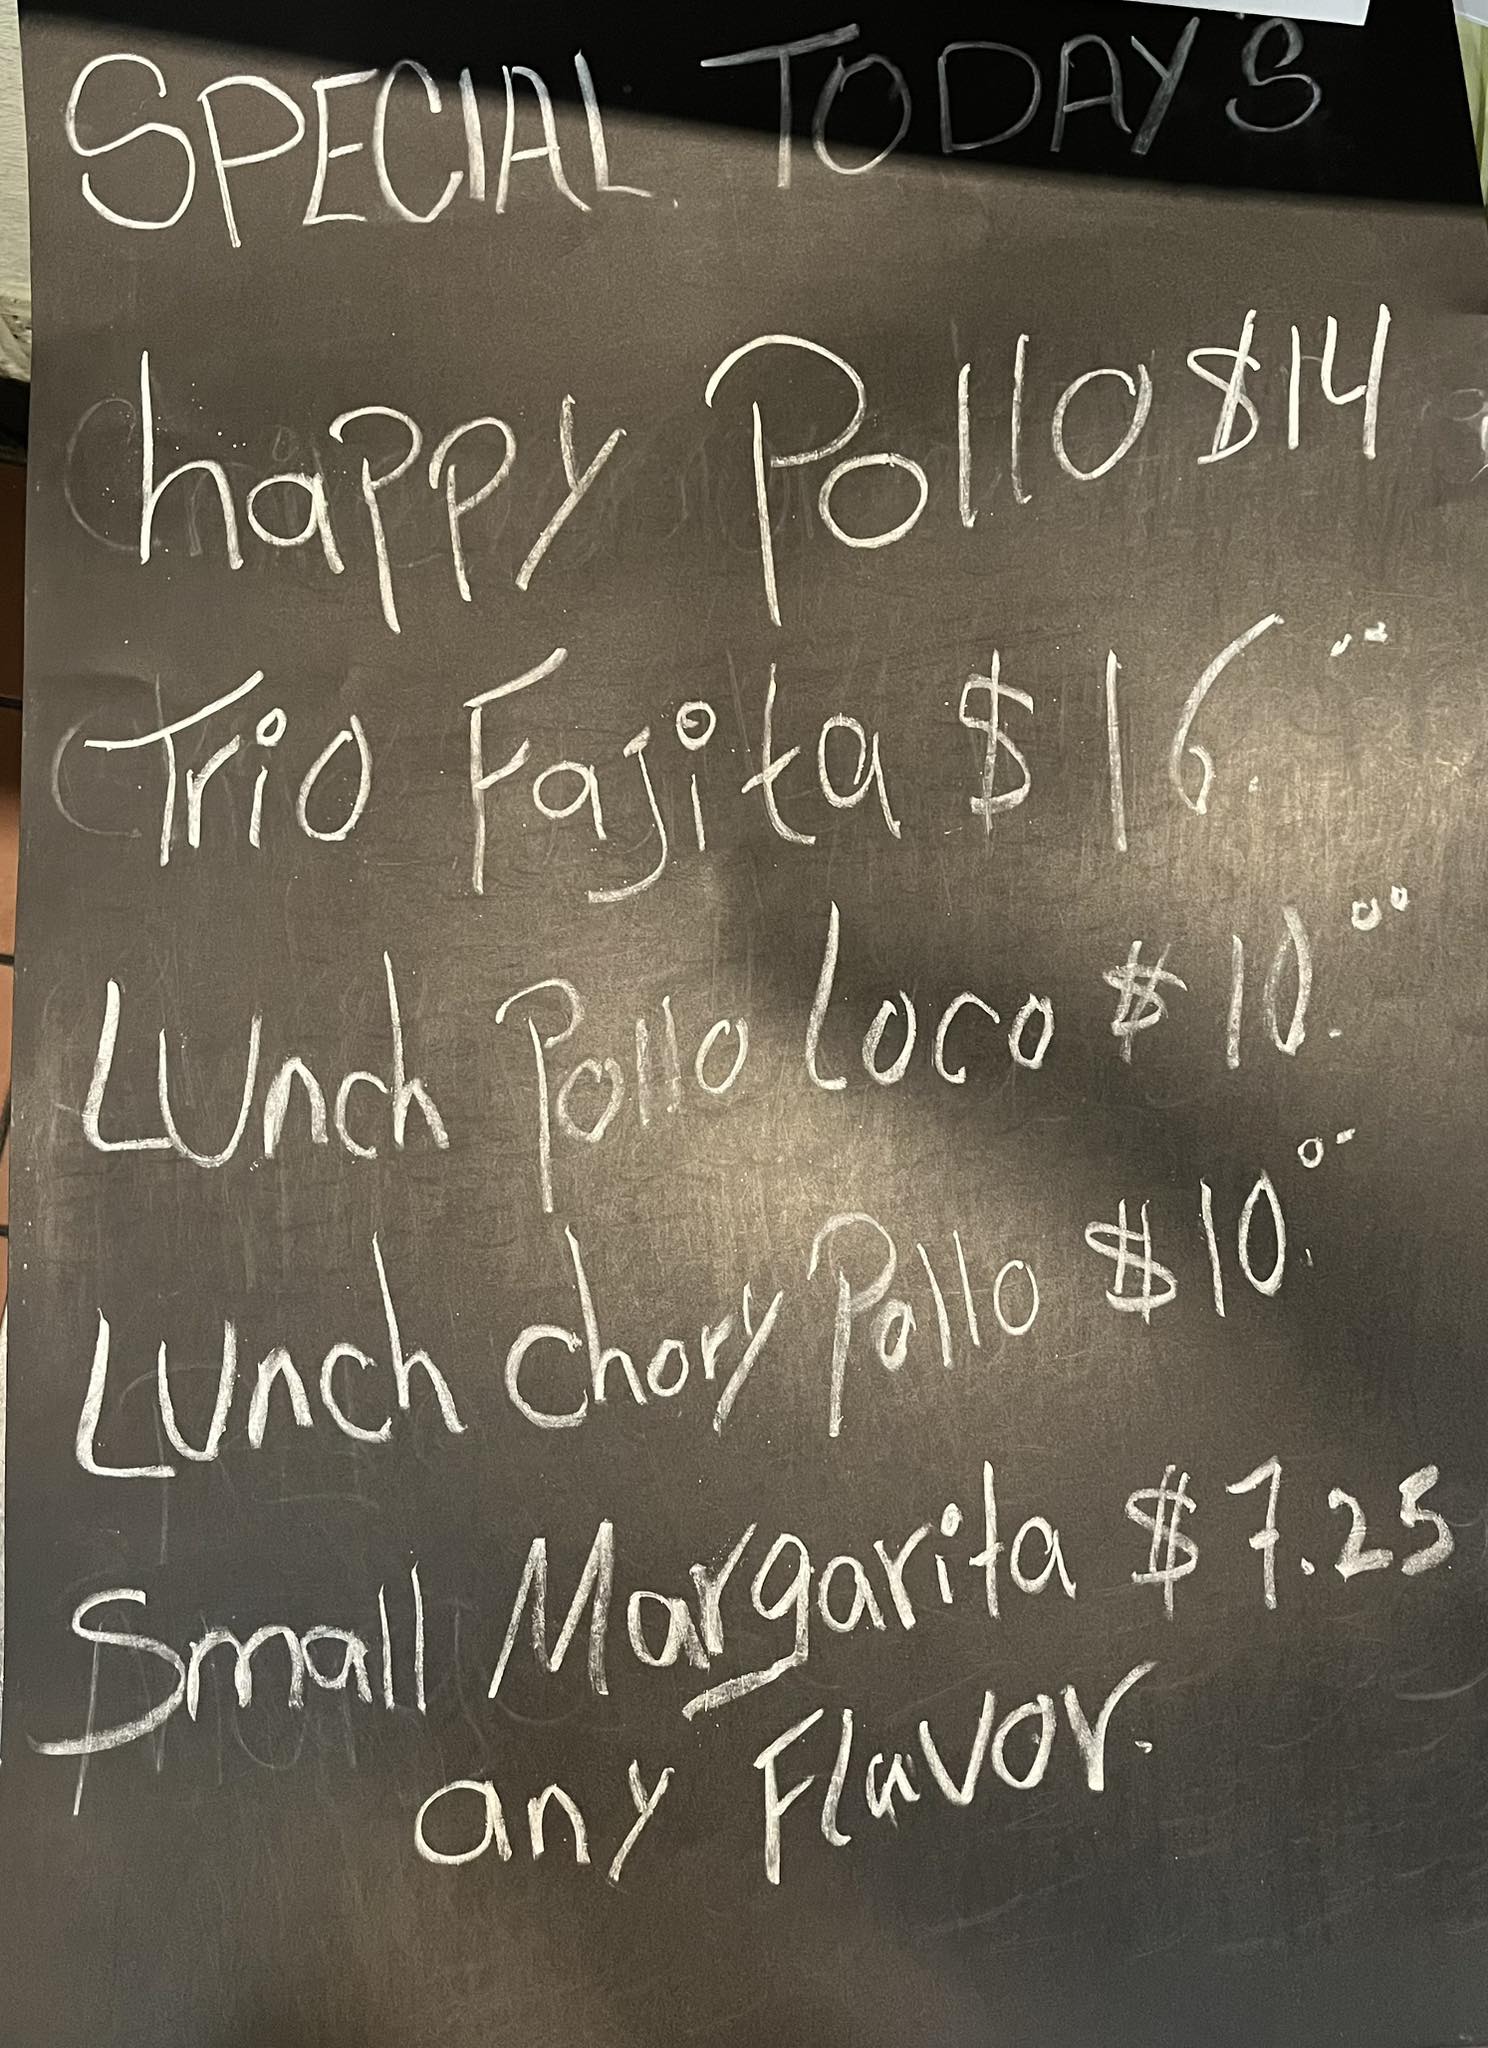 SPECIAL TODAY'S
happy Pollo $14
Trio Fajita $16.00
Lunch Pollo Loco $10.00
Lunch Chory Pollo $10.00
Small Margarita $7.25
any Flavor.